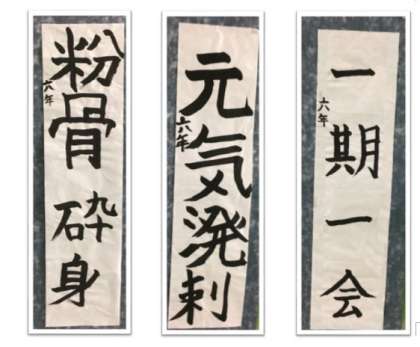 粉骨砕身
六年
元気溌剌
六年
一期一会
六年